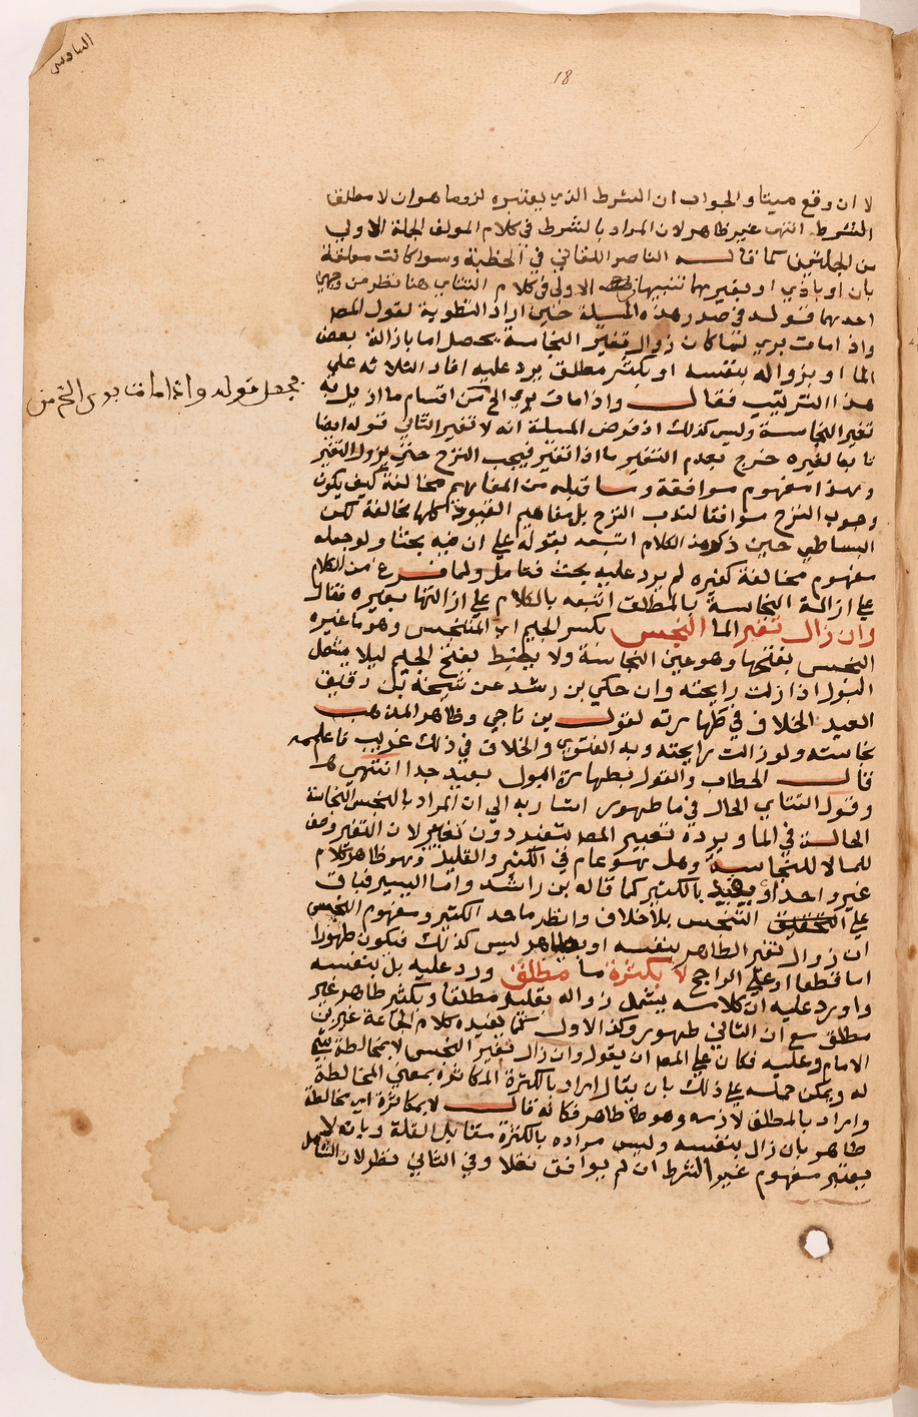 السادس
18
لا ان وقع ميتا والجواب ان الشرط الذي يعتبره لزوما هو ان لا مطلق
الشرط انتهى غير ظاهر لان المراد بالشرط في كلام المولف الجملة الاولى
من الجملتين كما قاله الناصر اللقاني في الخطبة وسوا كانت معلقة
بان او باذي او بغيرهما تنبيهان الاول في كلام التتاي هنا نظر من وجهين
احدهما قوله في صدر هذه المسيلة حين اراد التطوية لقول المص
واذا مات بري لما كان زوال تغير النجاسة يحصل اما بازالة بعض
الما او بزواله بنفسه او بكثير مطلق يرد عليه افاد الثلاثة علي
هذا الترتيب فقال واذا مات بري الخ من اقسام ما ازيل به
فجعل قوله واذا مات بري الخ من
تغير النجاسة وليس كذلك اذ فرض المسيلة انه لا تغير الثاني قوله ايضا
تابعا لغيره خرج بعدم التغير ما اذا تغير فيجب النزح حتى يزول التغير
وهذا مفهوم موافقة وما قبله من المفاهيم مخالفة كيف يكون
وجوب النزح موافقا لندب النزح بل مفاهيم القيود كلها مخالفة لكن
البساطي حين ذكر هذا الكلام اتبعه بقوله علي ان فيه بحثا ولو جعله
مفهوم مخالفة كغيره لم يرد عليه بحث فتامل ولما فرغ من الكلام
علي ازالة النجاسة بالمطلق اتبعه بالكلام علي ازالتها بغيره فقال
وان زال تغير الما النجس بكسر الجيم اي المتنجس وهو ما غيره
النجس بفتحها وهو عين النجاسة ولا يضبط بفتح الجيم ليلا يشمل
البول اذا زالت رايحته وان حكي بن رشد عن شيخه بن دقيق
العيد الخلاف في طهارته لقول بن ناجي وظاهر المذهب
نجاسته ولو زالت رايحته وبه الفتوى والخلاف في ذلك غريب فاعلمه
قال الحطاب والقول بطهارة البول بعيد جدا انتهى
وقول التتاي الحال في ما طهور اشار به الي ان المراد بالنجس النجاسة
الحالة في الما ويرده تعبير المص بتغير دون تغيير لان التغير وصف
للما لا للنجاسة وهل هو عام في الكثير والقليل وهو ظاهر كلام
غير واحد او يقيد بالكثير كما قاله بن راشد واما اليسير فباق
علي التنجس بلا خلاف وانظر ما حد الكثير ومفهوم النجس
ان زوال تغير الطاهر بنفسه او بطاهر ليس كذلك فيكون طهورا
اما قطعا او علي الراجح لا بكثرة ما مطلق ورد عليه بل بنفسه
واورد عليه ان كلامه يشمل زواله بقليل مطلقا وبكثير طاهر غير
مطلق مع ان الثاني طهور وكذا الاول كما يفيده كلام الجماعة غير بن
الامام وعليه فكان علي المص ان يقول وان زال تغير النجس لا بمخالطة شي
له ويمكن حمله علي ذلك بان يقال اراد بالكثرة المكاثرة بمعنى المخالطة
واراد بالمطلق لازمه وهو ما طاهر فكانه قال لا بمكاثرة اي مخالطة
طاهر بان زال بنفسه وليس مراده بالكثرة مقابل القلة وبانه لا
يعتبر مفهوم غير الشرط ان لم يوافق نقلا وفي الثاني نظر لان الشامل